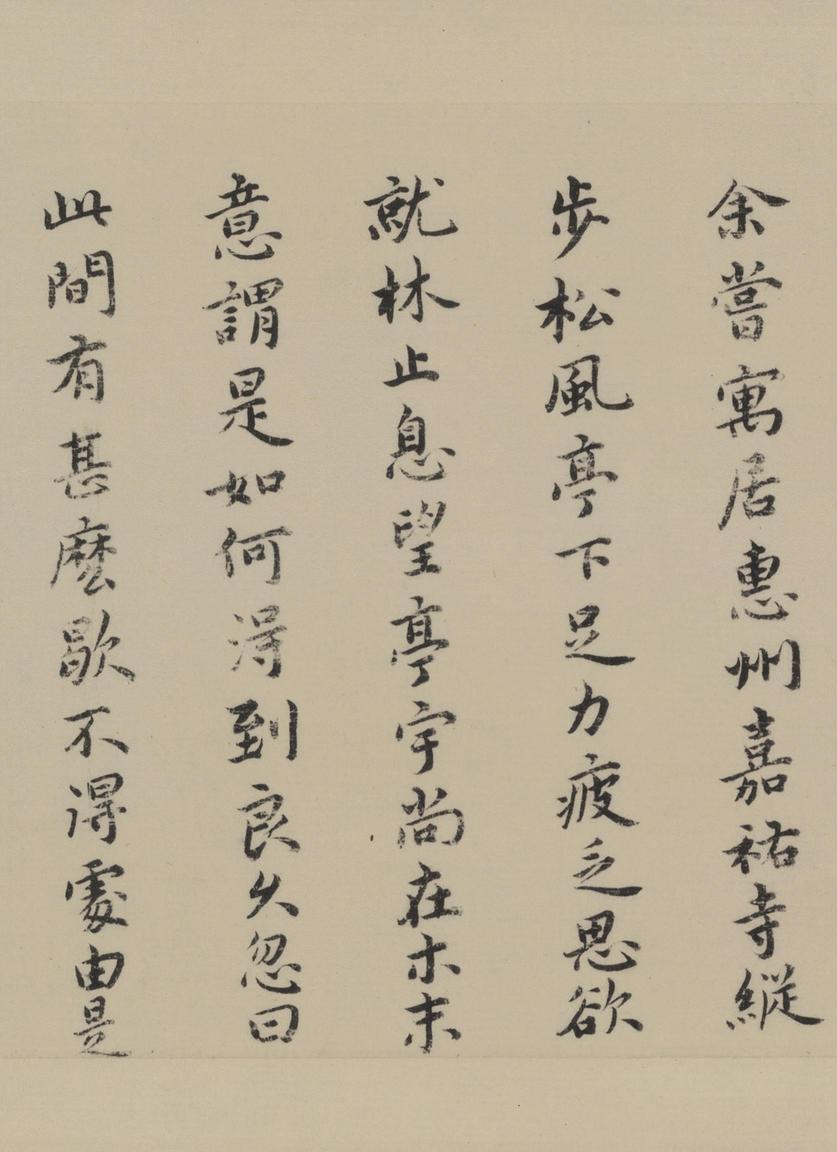 余嘗寓居惠州嘉祐寺縱
步松風亭下足力疲乏思欲
就林止息望亭宇尚在木末
意謂是如何得到良久忽曰
此間有甚麽歇不得處由是